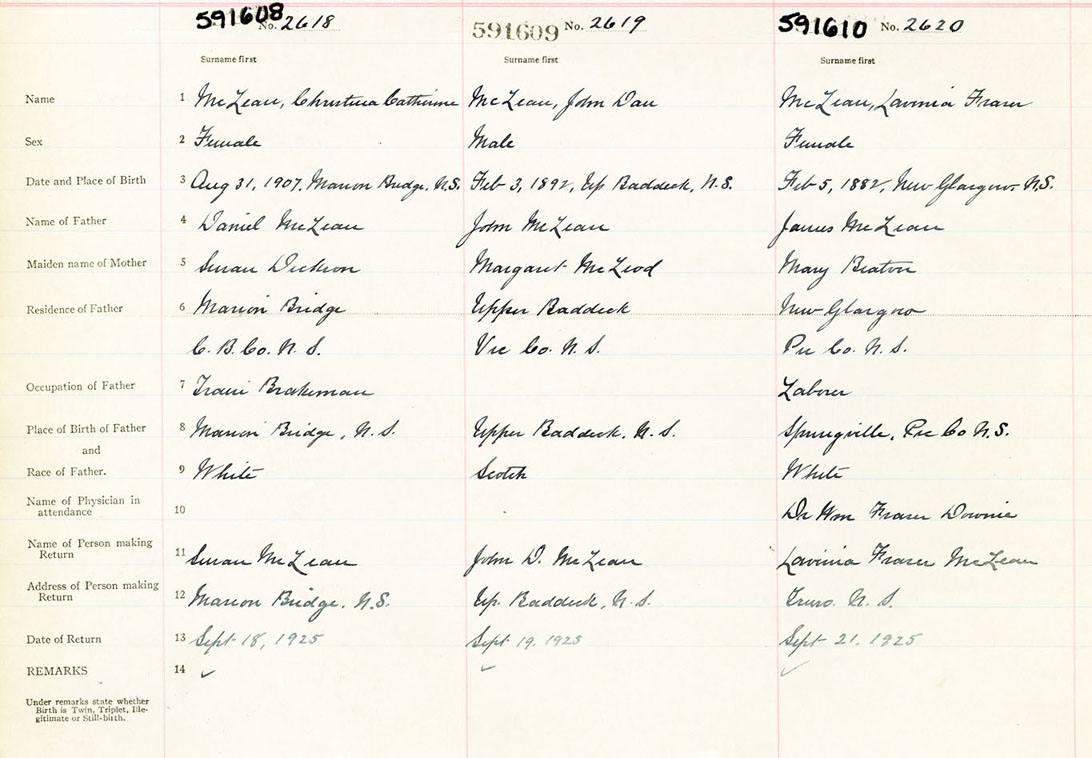 591608 No. 2618 591609 No. 2619 591610 No. 2620
Surname first Surname first Surname first
Name 1 McLean, Christina Catherine McLean, John Dan McLean, Lavinia Fraser
Sex 2 Female Male Female
Date and Place of Birth 3 Aug 31, 1907, Marion Bridge, N.S. Feb 3, 1892, Up Baddeck, N.S. Feb 5, 1882, New Glasgow N.S.
Name of Father 4 Daniel McLean John McLean James McLean
Maiden name of Mother 5 Susan Dickson Margaret McLeod Mary Beaton
Residence of Father 6 Marion Bridge Upper Baddeck New Glasgow
C. B. Co. N. S. Vic Co. N. S. Pic Co. N. S.
Occupation of Father 7 Train Brakeman Laborer
Place of Birth of Father 8 Marion Bridge, N.S. Upper Baddeck, N. S. Springville, Pic Co N.S.
and
Race of Father. 9 White Scotch White
Name of Physician in
attendance 10 Dr Wm Fraser Downie
Name of Person making
Return 11 Susan McLean John D. McLean Lavinia Fraser McLean
Address of Person making
Return 12 Marion Bridge, N.S. Up. Baddeck, N. S. Truro. N. S.
Date of Return 13 Sept 18, 1925 Sept 19, 1925 Sept 21. 1925
REMARKS 14 ✓ ✓ ✓
Under remarks state whether
Birth is Twin, Triplet, Ille-
gitimate or Still-birth.